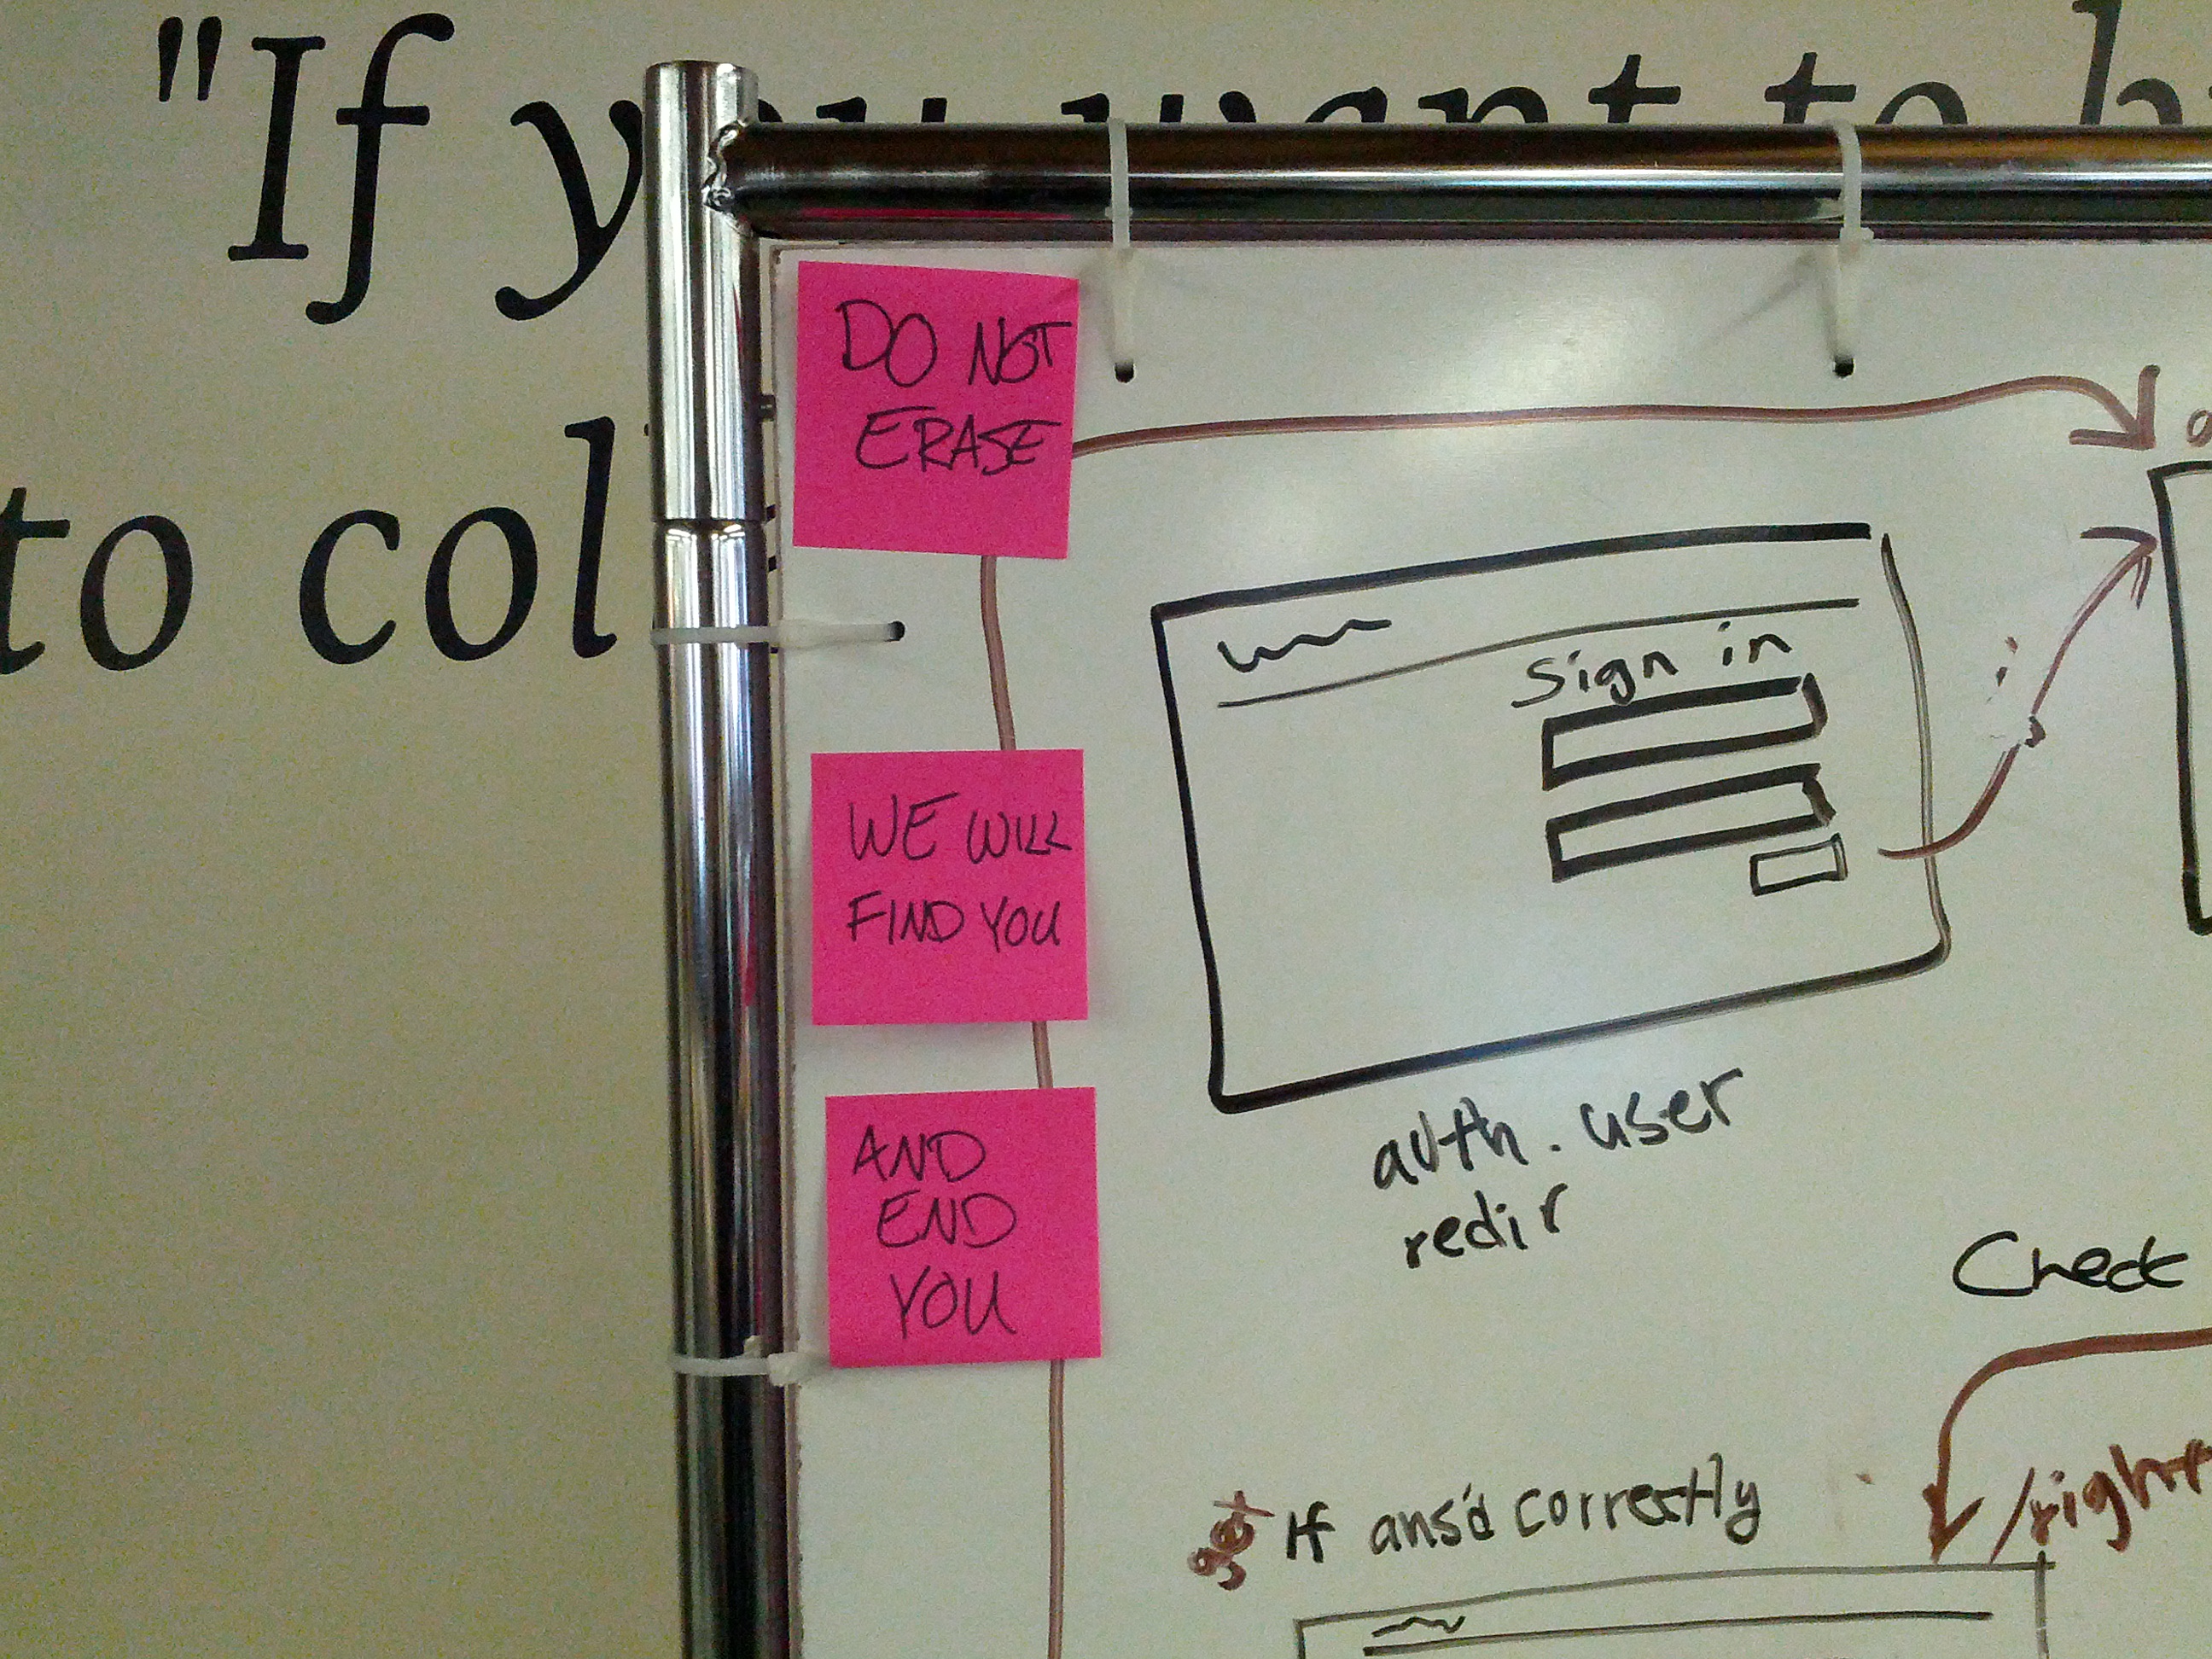 "If you want to
to col
DO NOT
ERASE
WE WILL
FIND YOU
AND
END
YOU
Sign in
auth.user
redir
Check
get If ans'd correctly